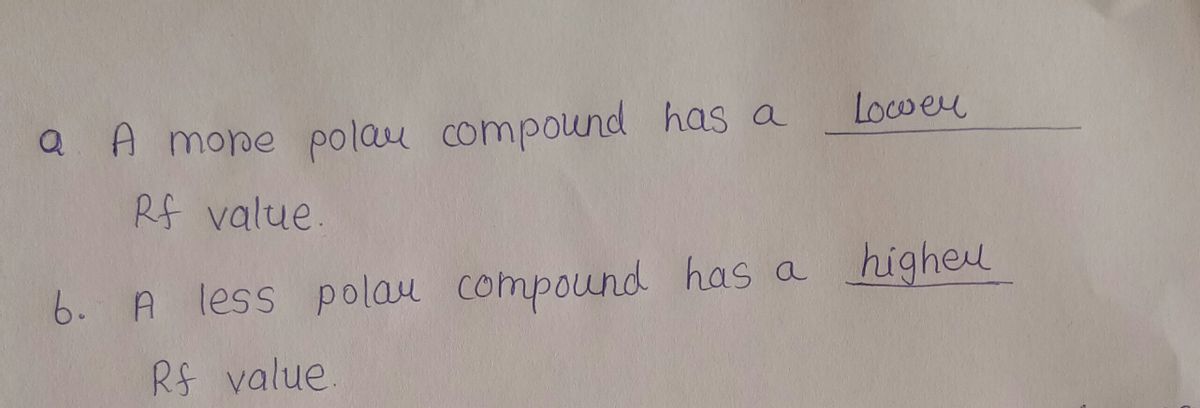 a. A more polar compound has a Lower
Rf value.
b. A less polar compound has a higher
Rf value.